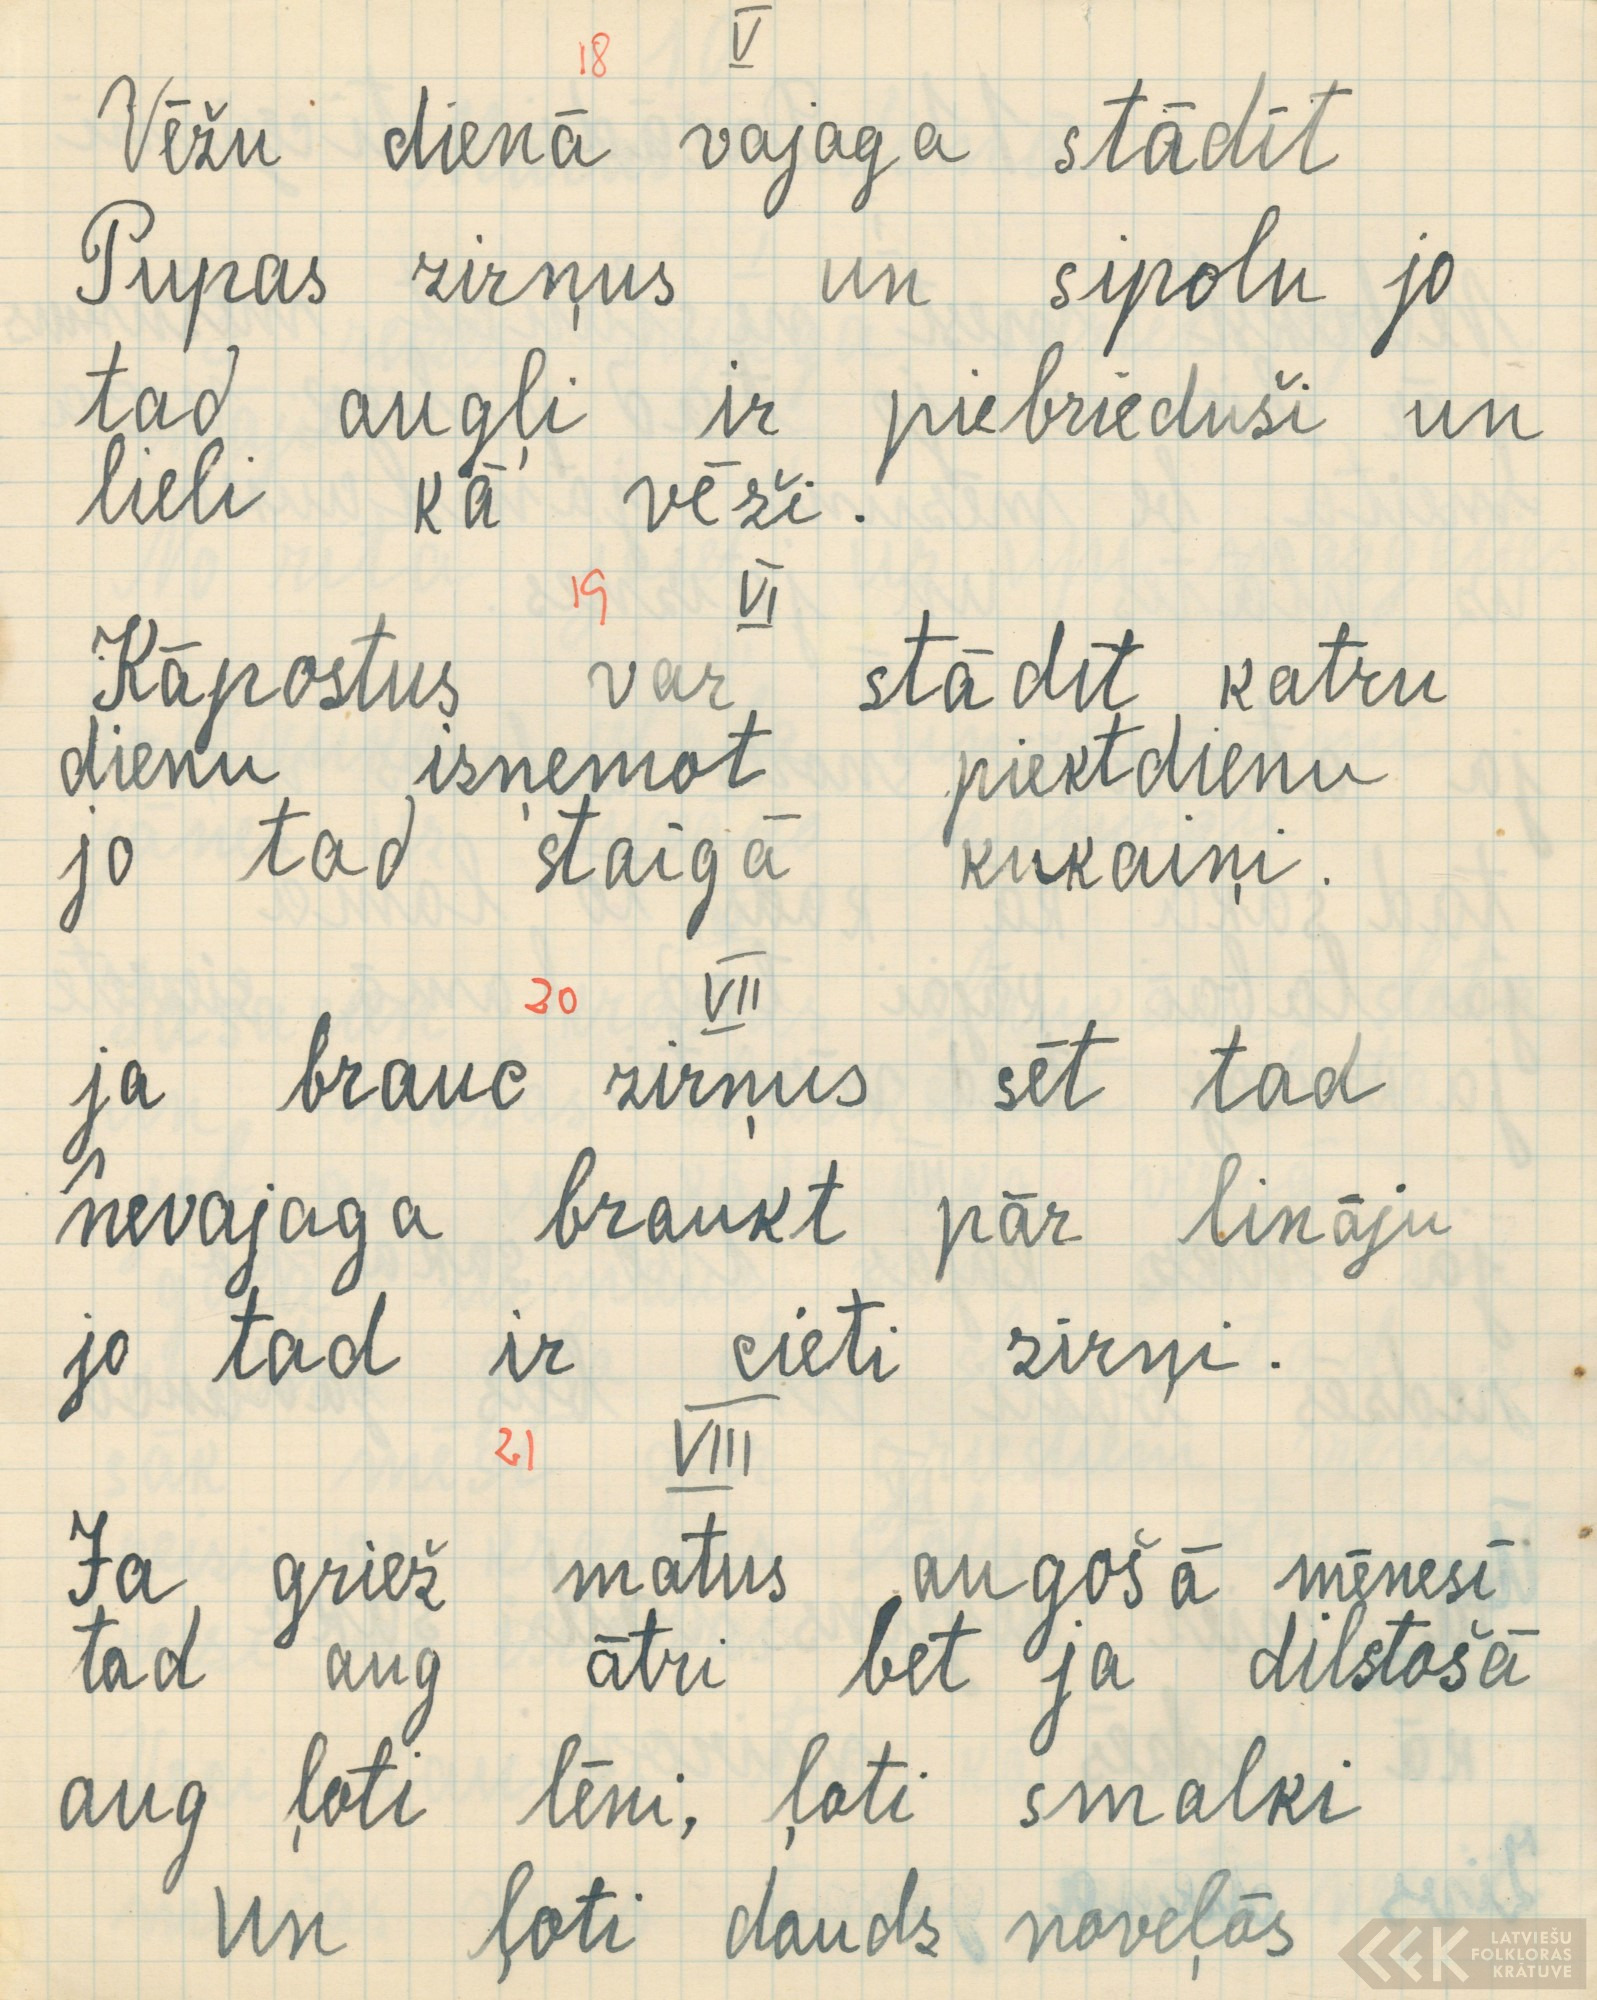 18 V
Vēžu dienā vajaga stādīt
Pupas zirņus un sipolu jo
tad augļi ir piebrieduši un
lieli kā vēži.
19 VI
Kāpostus var stādīt katru
dienu isņemot piektdienu
jo tad staigā kukaiņi.
20 VII
ja brauc zirņus sēt tad
nevajaga braukt pār lināju
jo tad ir cieti zirņi.
21 VIII
Ja griež matus augošā mēnesī
tad aug ātri bet ja dilstošā
aug ļoti lēni, ļoti smalki
un ļoti daudz noveļās
LATVIEŠU
FOLKLORAS
KRĀTUVE